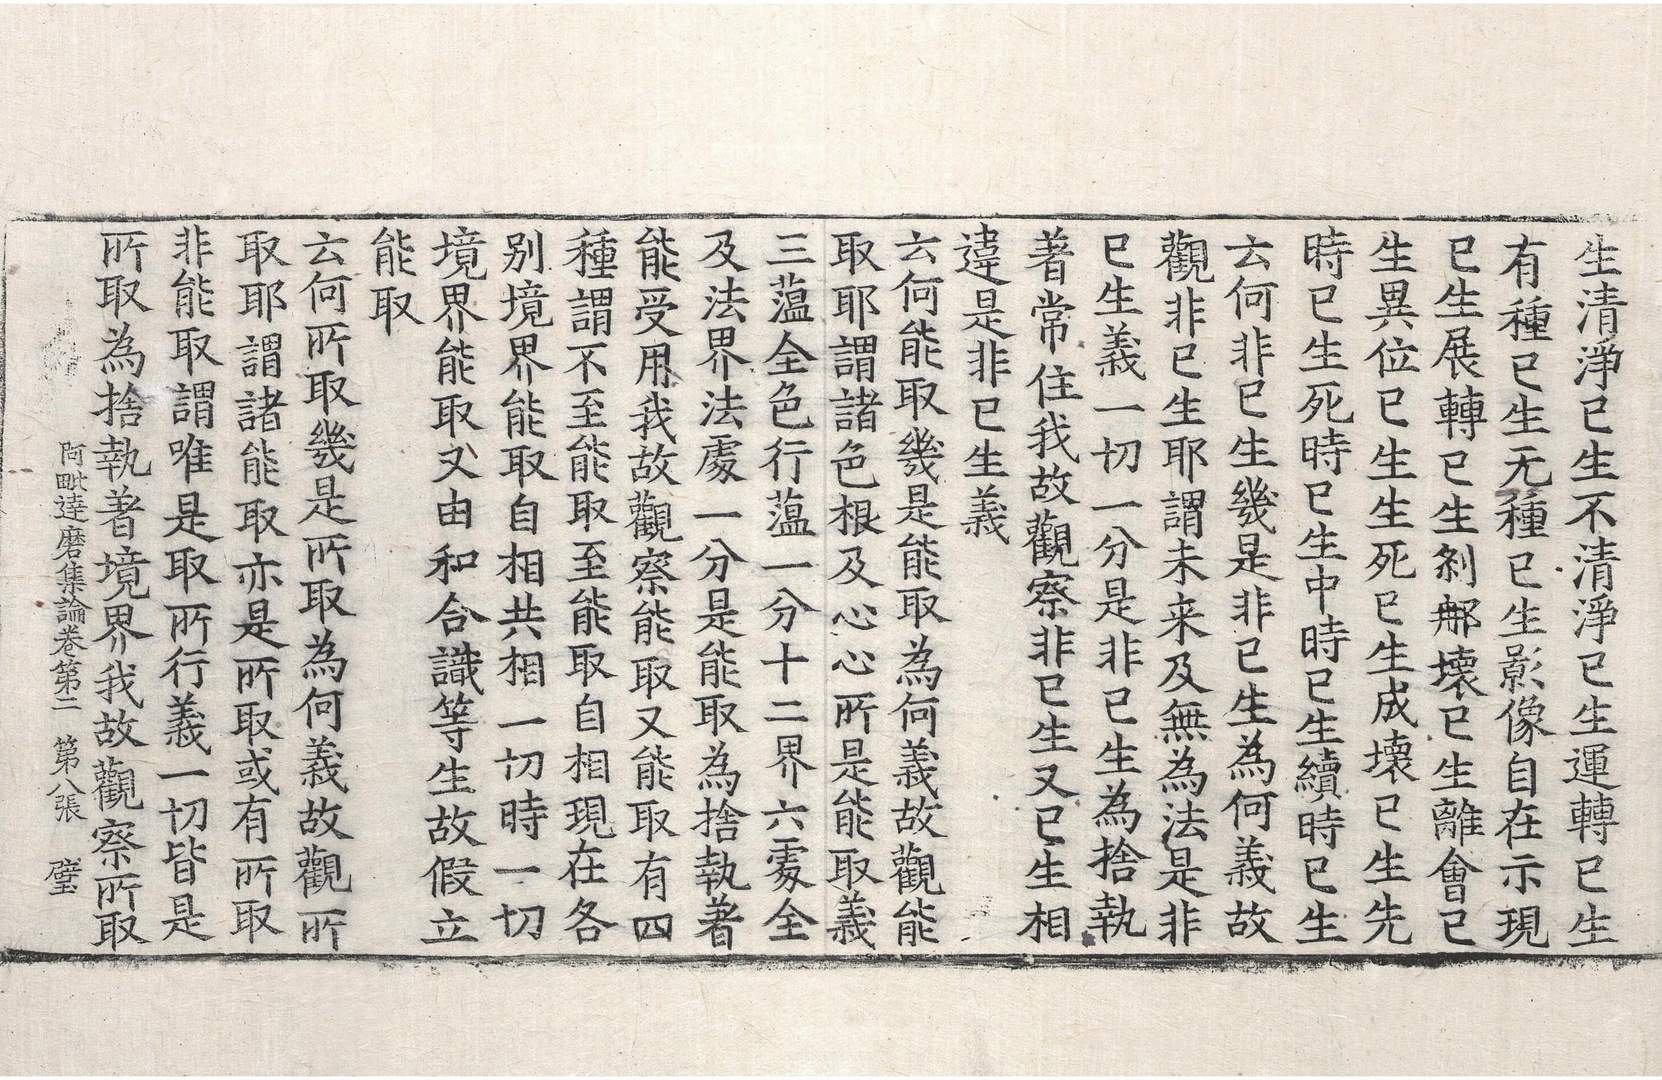 生清淨已生不清淨已生運轉已生
有種已生无種已生影像自在示現
已生展轉已生剎那壞已生離會已
生異位已生生死已生成壞已生先
時已生死時已生中時已生續時已生
云何非已生幾是非已生為何義故
觀非已生耶謂未来及無為法是非
已生義一切一分是非已生為捨執
著常住我故觀察非已生又已生相
違是非已生義
云何能取幾是能取為何義故觀能
取耶謂諸色根及心心所是能取義
三薀全色行薀一分十二界六處全
及法界法處一分是能取為捨執著
能受用我故觀察能取又能取有四
種謂不至能取至能取自相現在各
别境界能取自相共相一切時一切
境界能取又由和合識等生故假立
能取
云何所取幾是所取為何義故觀所
取耶謂諸能取亦是所取或有所取
非能取謂唯是取所行義一切皆是
所取為捨執著境界我故觀察所取
阿毗達磨集論卷第二 第八張 璧